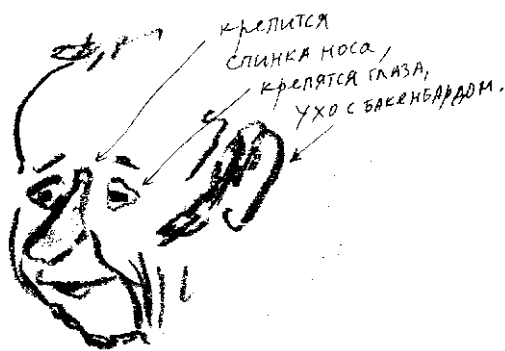 крепится
спинка носа,
крепятся глаза,
ухо с бакенбардом.